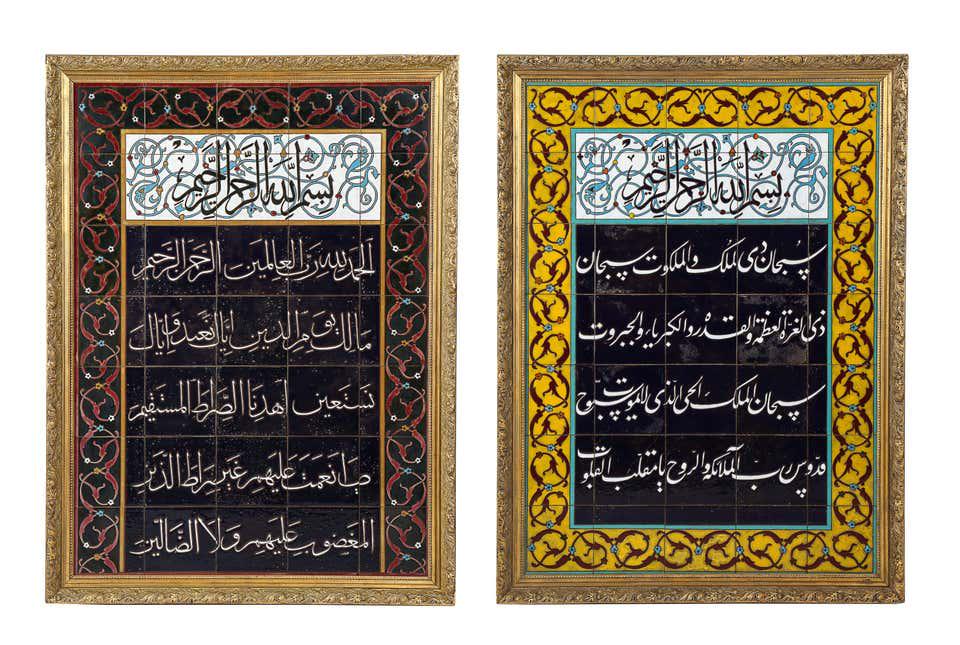 بسم الله الرحمن الرحیم
الحمد لله رب العالمین الرحمن الرحیم
مالك یوم الدین ایاك نعبد وایاك
نستعین اهدنا الصراط المستقیم
ص انعمت علیهم غیر راط الذین
المغضوب علیهم ولا الضالین
بسم الله الرحمن الرحیم
سبحان ذی الملک والملکوت سبحان
ذی العزة العظمة والقدرة والکبریاء والجبروت
سبحان الملک الحی الذی لا یموت سبّوح
قدّوس رب الملائکة والروح یا مقلب القلوب